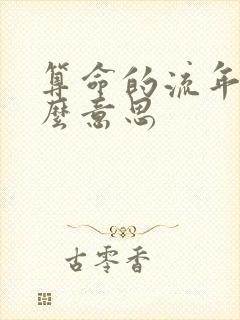 算命的流年
麼意思
古零香